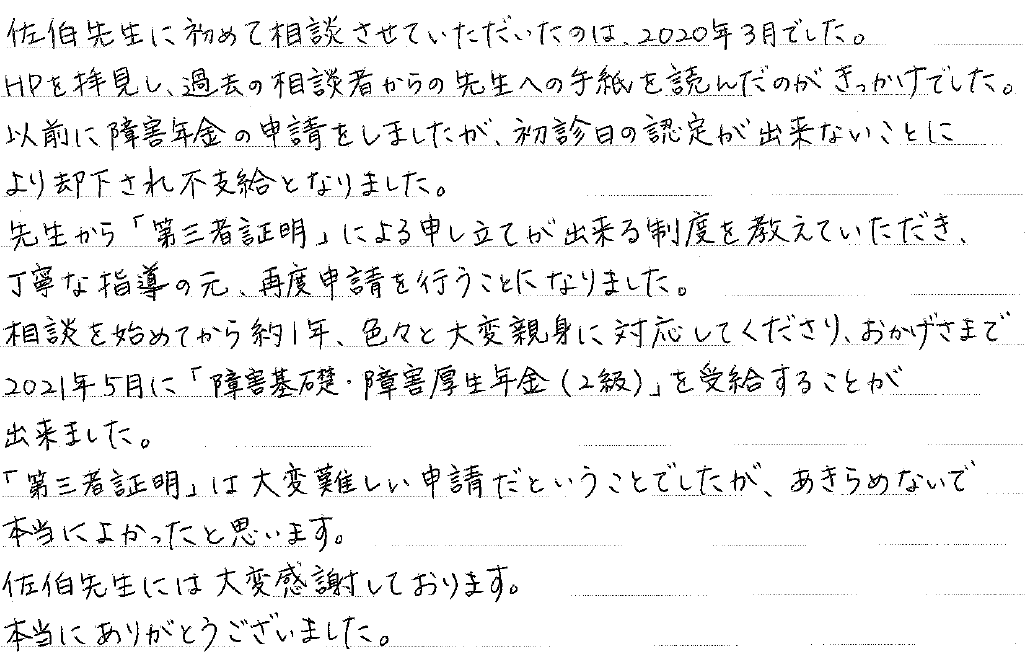 佐伯先生に初めて相談させていただいたのは、2020年3月でした。
HPを拝見し、過去の相談者からの先生への手紙を読んだのがきっかけでした。
以前に障害年金の申請をしましたが、初診日の認定が出来ないことに
より却下され不支給となりました。
先生から「第三者証明」による申し立てが出来る制度を教えていただき、
丁寧な指導の元、再度申請を行うことになりました。
相談を始めてから約1年、色々と大変親身に対応してくださり、おかげさまで
2021年5月に「障害基礎・障害厚生年金(2級)」を受給することが
出来ました。
「第三者証明」は大変難しい申請だということでしたが、あきらめないで
本当によかったと思います。
佐伯先生には大変感謝しております。
本当にありがとうございました。